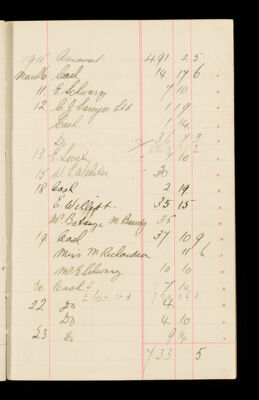 1915 Amount 491 2 5
March 6 Cash 14 17 6
11. E Schwarz 7 10
12. C J Sawyer Ltd 1 19
Cash 1 14
Do 36 7 3
13 E. 7 10
15 W. E Webster 30
18 Cash 2 19
E Wellett 35 15
Mr M 35
19 Cash 37 10 9
Miss M Richardson 11 6
Mr E Schwarz 10 10
20 Cash 7 10
22 Do 4
Do 4 10
23 Do 9 14
733 5